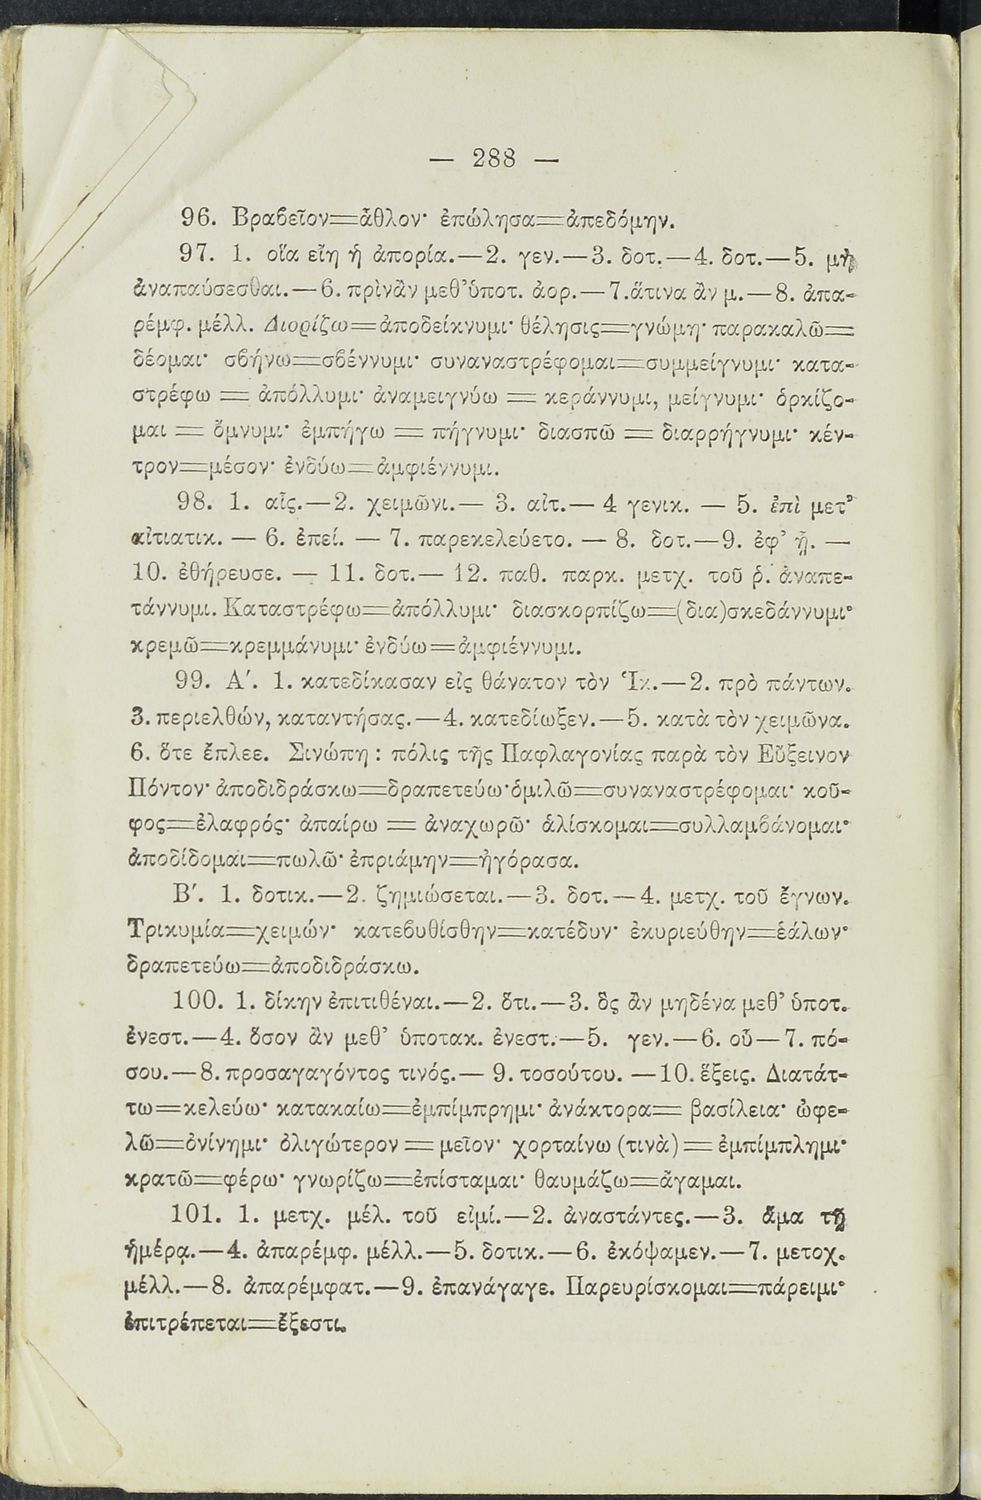 — 288 —
96. Βραβεῖον=ἆθλον· ἐπώλησα=ἀπεδόμην.
97. 1. οἵα εἴη ἡ ἀπορία.—2. γεν.—3. δοτ.—4. δοτ.—5. μὴ
ἀναπαύσεσθαι.—6. πρὶν ἂν μεθ' ὑποτ. ἀορ.—7. ἅτινα ἂν μ.—8. ἀπα-
ρέμφ. μέλλ. Διορίζω=ἀποδείκνυμι· θέλησις=γνώμη· παρακαλῶ=
δέομαι· σβήνω=σβέννυμι· συναναστρέφομαι=συμμείγνυμι· κατα-
στρέφω = ἀπόλλυμι· ἀναμειγνύω = κεράννυμι, μείγνυμι· ὁρκίζο-
μαι = ὄμνυμι· ἐμπήγω = πήγνυμι· διασπῶ = διαρρήγνυμι· κέν-
τρον=μέσον· ἐνδύω=ἀμφιέννυμι.
98. 1. αἷς.—2. χειμῶνι.— 3. αἰτ.— 4 γενικ. — 5. ἐπὶ μετ'
αἰτιατικ. — 6. ἐπεί. — 7. παρεκελεύετο. — 8. δοτ.—9. ἐφ' ᾗ. —
10. ἐθήρευσε. — 11. δοτ.— 12. παθ. παρκ. μετχ. τοῦ ῥ. ἀναπε-
τάννυμι. Καταστρέφω=ἀπόλλυμι· διασκορπίζω=(δια)σκεδάννυμι·
κρεμῶ=κρεμμάνυμι· ἐνδύω=ἀμφιέννυμι.
99. Α'. 1. κατεδίκασαν εἰς θάνατον τὸν Ἴκ.—2. πρὸ πάντων.
3. περιελθών, καταντήσας.—4. κατεδίωξεν.—5. κατὰ τὸν χειμῶνα.
6. ὅτε ἔπλεε. Σινώπη : πόλις τῆς Παφλαγονίας παρὰ τὸν Εὔξεινον
Πόντον· ἀποδιδράσκω=δραπετεύω· ὁμιλῶ=συναναστρέφομαι· κοῦ-
φος=ἐλαφρός· ἀπαίρω = ἀναχωρῶ· ἁλίσκομαι=συλλαμβάνομαι·
ἀποδίδομαι=πωλῶ· ἐπριάμην=ἠγόρασα.
Β'. 1. δοτικ.—2. ζημιώσεται.—3. δοτ.—4. μετχ. τοῦ ἔγνων.
Τρικυμία=χειμών· κατεβυθίσθην=κατέδυν· ἐκυριεύθην=ἑάλων·
δραπετεύω=ἀποδιδράσκω.
100. 1. δίκην ἐπιτιθέναι.—2. ὅτι.—3. ὃς ἂν μηδένα μεθ' ὑποτ.
ἐνεστ.—4. ὅσον ἂν μεθ' ὑποτακ. ἐνεστ.—5. γεν.—6. οὗ—7. πό-
σου.—8. προσαγαγόντος τινός.— 9. τοσούτου. —10. ἕξεις. Διατάτ-
τω=κελεύω· κατακαίω=ἐμπίμπρημι· ἀνάκτορα= βασίλεια· ὠφε-
λῶ=ὀνίνημι· ὀλιγώτερον = μεῖον· χορταίνω (τινὰ) = ἐμπίμπλημι·
κρατῶ=φέρω· γνωρίζω=ἐπίσταμαι· θαυμάζω=ἄγαμαι.
101. 1. μετχ. μέλ. τοῦ εἰμί.—2. ἀναστάντες.—3. ἅμα τῇ
ἡμέρᾳ.—4. ἀπαρέμφ. μέλλ.—5. δοτικ.—6. ἐκόψαμεν.—7. μετοχ.
μέλλ.—8. ἀπαρέμφατ.—9. ἐπανάγαγε. Παρευρίσκομαι=πάρειμι·
ἐπιτρέπεται=ἔξεστι.